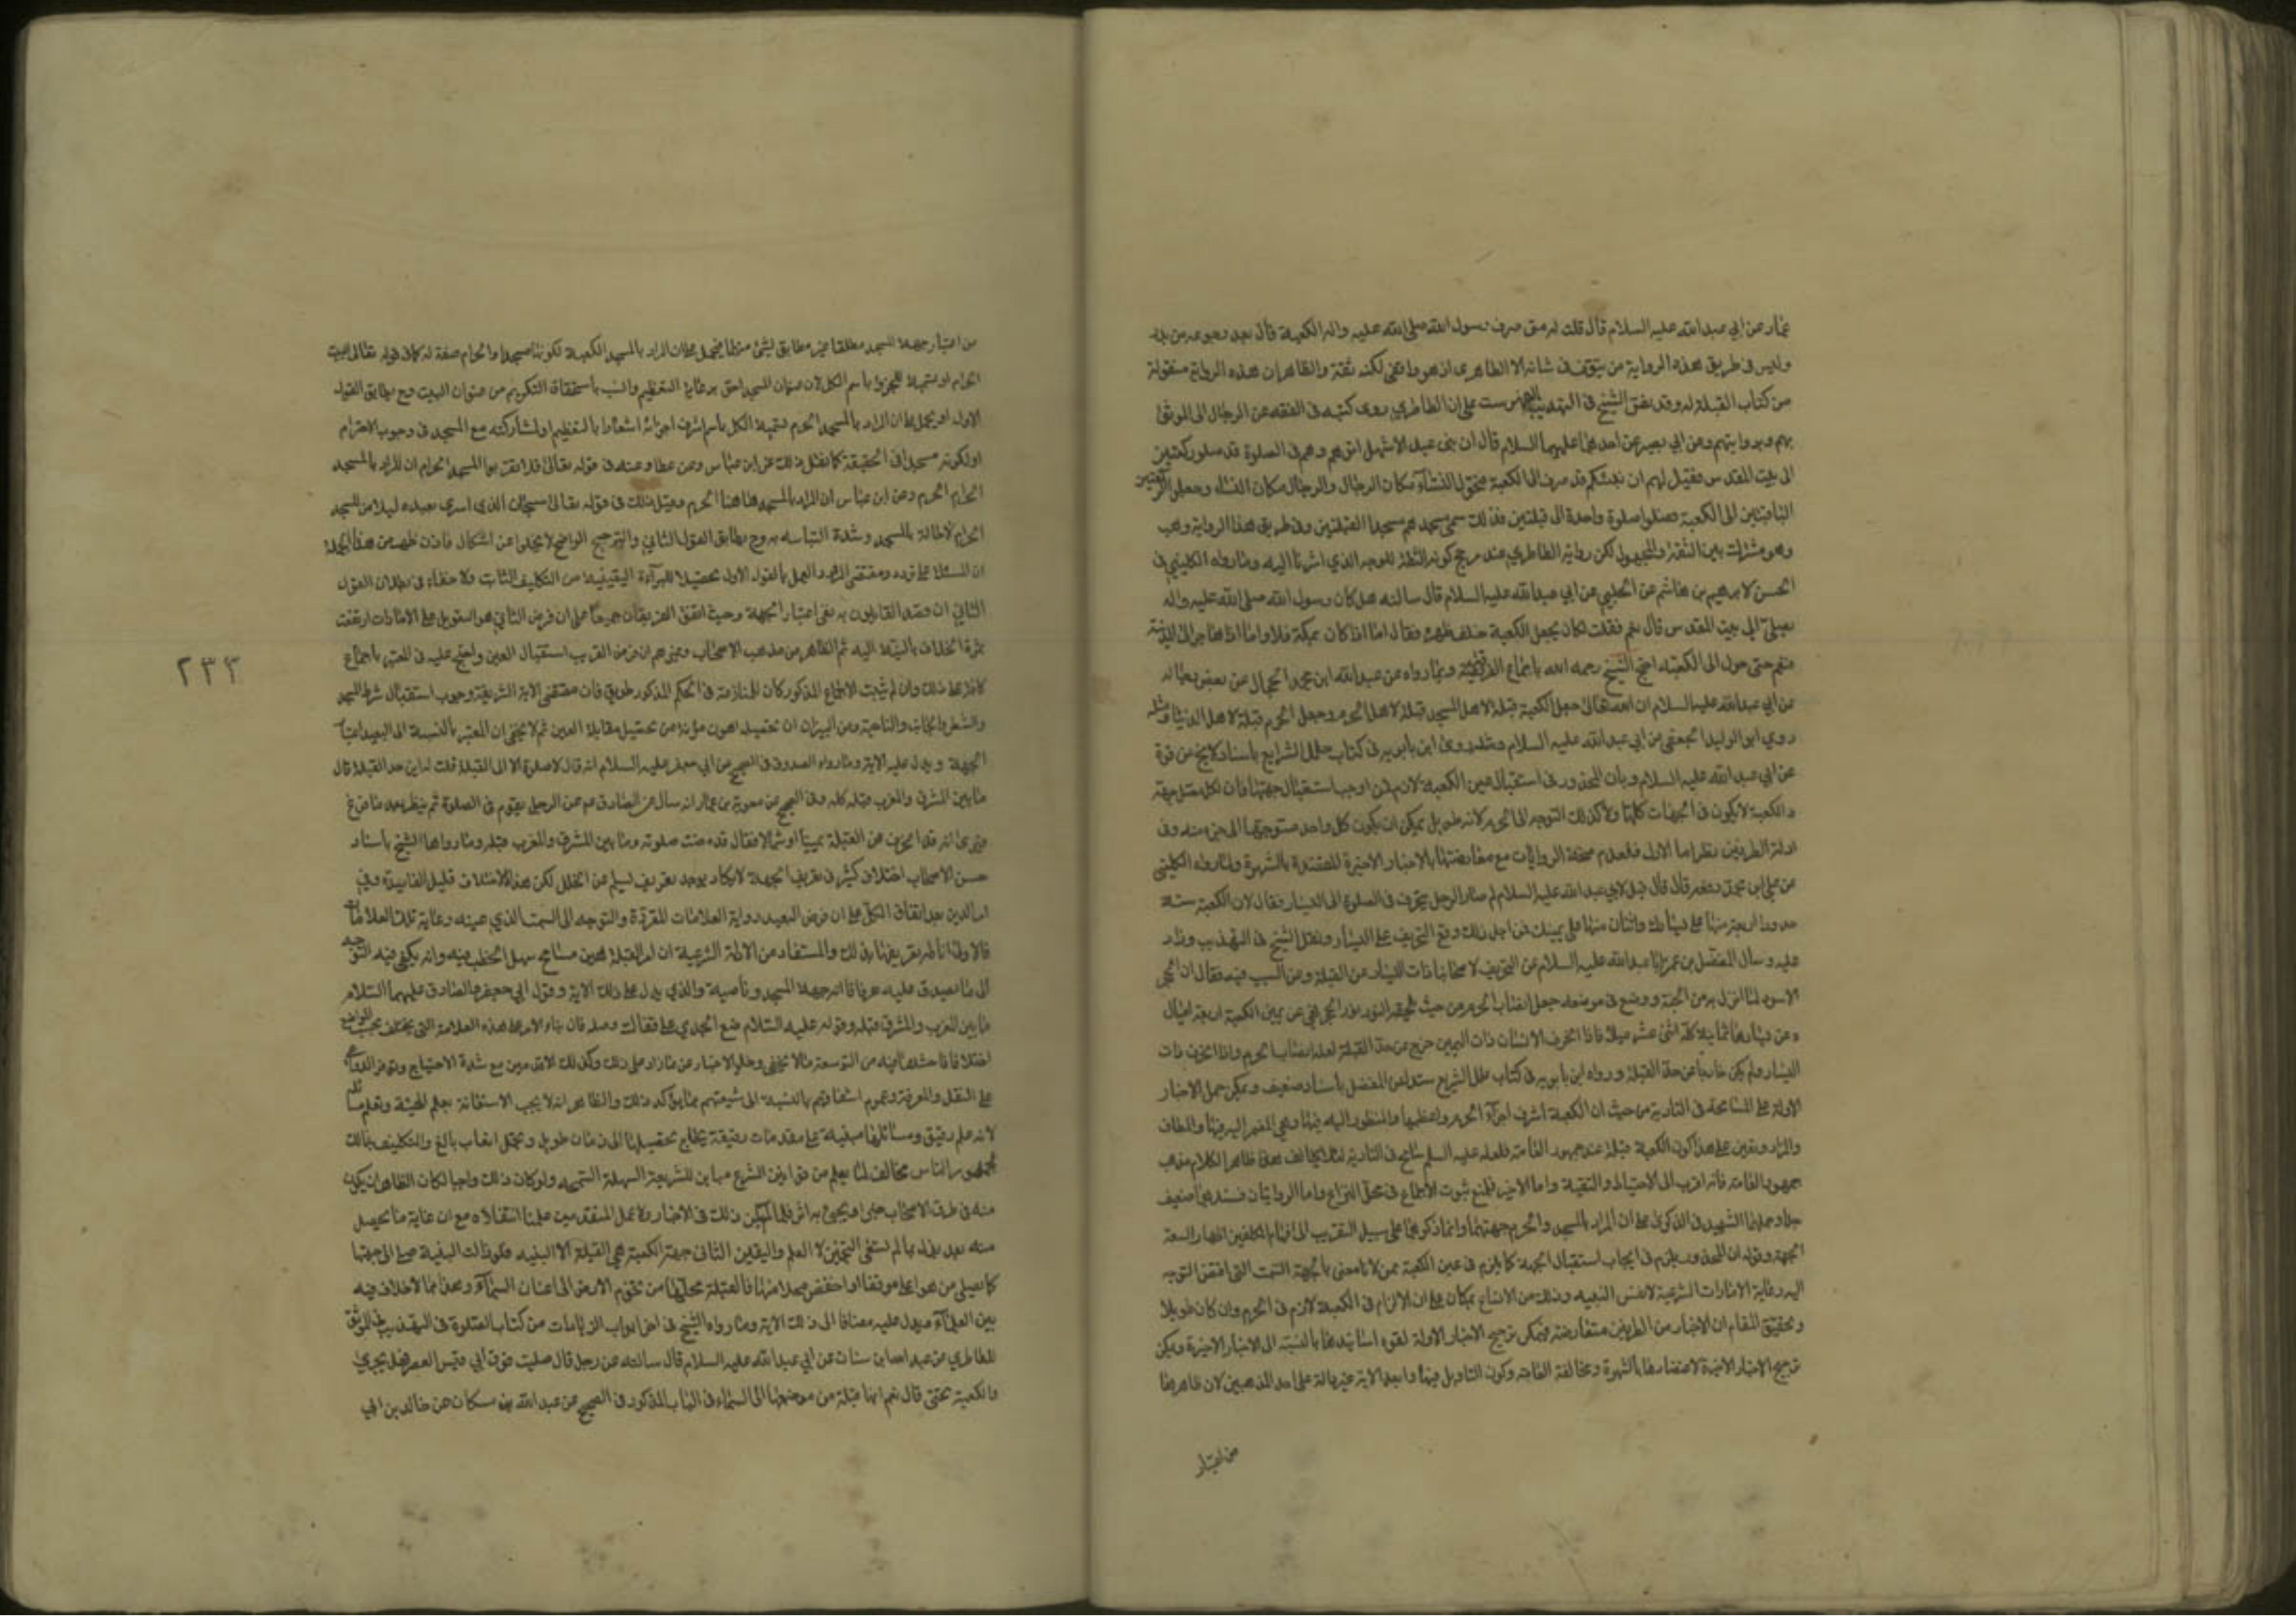 عمار عن ابي عبدالله عليه السلام قال قلت له متى صرف رسول الله صلى الله عليه واله الكعبة قال بعد رجوعه من بدر
وليس في طريق هذه الرواية من يتوقف في شانه الا الطاطري انه واقفي لكنه ثقة والظاهر ان هذه الرواية منقولة
من كتاب القبلة له وقد نقل الشيخ في الفهرست على ان الطاطري روى كتبه في الفقه عن الرجال الموثق
بهم وبروايتهم وعن ابي بصير عن احدهما عليهما السلام قال ان بني عبد الاشهل اتوهم وهم في الصلوة قد صلوا ركعتين
الى بيت المقدس فقيل لهم ان نبيكم قد صرف الى الكعبة فتحول النساء مكان الرجال والرجال مكان النساء وجعلوا الركعتين
الباقيتين الى الكعبة فصلوا صلوة واحدة الى قبلتين فلذلك سمي مسجدهم مسجد القبلتين وفي طريق هذا الرواية وهب
وهو مشترك بين الثقة والمجهول لكن رواية الطاطري عنه مرجح كونه الثقة للوجه الذي اشرنا اليه وما رواه الكليني في
الحسن لابرهيم بن هاشم عن الحلبي عن ابي عبدالله عليه السلام قال سالته هل كان رسول الله صلى الله عليه واله
يصلي الى بيت المقدس قال نعم فقلت اكان يجعل الكعبة خلف ظهره فقال اما اذا كان بمكة فلا واما اذا هاجر الى المدينة
فنعم حتى حول الى الكعبة احتج الشيخ رحمه الله باجماع الفرقة وبما رواه عن عبدالله ابن محمد الحجال عن بعض رجاله
عن ابي عبدالله عليه السلام ان الله تعالى جعل الكعبة قبلة لاهل المسجد وجعل المسجد قبلة لاهل الحرم وجعل الحرم قبلة لاهل الدنيا ومثله
روى ابو الوليد الجعفي عن ابي عبدالله عليه السلام ومثله روى ابن بابويه في كتاب علل الشرايع باسناد لا يخ من قوة
عن ابي عبد الله عليه السلام وبان المحذور في استقبال عين الكعبة لازم لمن اوجب استقبال جهتها فان لكل مصل جهة
والكعبة لا يكون في الجهات كلها ولا كذلك التوجه الى الحرم لانه طويل يمكن ان يكون كل واحد متوجها الى جزء منه وفي
ادلة الطرفين نظر اما الاول فلعدم صحة الروايات مع معارضتها بالاخبار الاخيرة المعتضدة بالشهرة وما رواه الكليني
عن علي ابن محمد رفعه قال قال قيل لابي عبدالله عليه السلام لم صار الرجل يحرف في الصلوة الى اليسار فقال لان الكعبة ستة
حدود اربعة منها على يسارك واثنان منها على يمينك فمن اجل ذلك وقع التحريف على اليسار ونقل الشيخ في التهذيب وزاد
عليه وسال المفضل بن عمر ابا عبدالله عليه السلام عن التحريف لاصحابنا ذات اليسار عن القبلة وعن السبب فيه فقال ان الحجر
الاسود لما انزل به من الجنة ووضع في موضعه جعل انصاب الحرم من حيث يلحقه النور نور الحجر فهي عن يمين الكعبة اربعة اميال
وعن يسارها ثمانية كله اثنى عشر ميلا فاذا انحرف الانسان ذات اليمين خرج عن حد القبلة لقلة انصاب الحرم واذا انحرف ذات
اليسار ولم يكن خارجا عن حد القبلة ورواه ابن بابويه في كتاب علل الشرايع مسندا عن المفضل باسناد ضعيف ويمكن حمل الاخبار
الاولة على المسامحة في التادية من حيث ان الكعبة اشرف اجزاء الحرم واعظمها والمنظور اليه فيها وهي المعتبر اليه فيها والمطاف
والمزار وتعين على هذا كون الكعبة قبلة عند جمهور العامة فلعله عليه السلم سامح في التادية لئلا يخالف هذا ظاهر الكلام مذهب
جمهور العامة فانه اقرب الى الاحتياط والتقية واما الاخير فلمنع ثبوت الاجماع في محل النزاع واما الروايتان فسندهما ضعيف
جدا وحملهما الشهيد في الذكرى على ان المراد بالمسجد والحرم جهتهما وانما ذكرهما على سبيل التقريب الى افهام المكلفين اظهار السعة
الجهة وقوله ان المحذور يلزم في ايجاب استقبال الجهة كما يلزم في عين الكعبة ممن لا نامعنى بالجهة السمت التي افتقر التوجه
اليه رعاية الامارات الشرعية لا نفس البنيه وذلك من الاتساع بمكان على ان الالزام في الكعبة لازم في الحرم وان كان طويلا
وتحقيق المقام ان الاخبار من الطرفين متعارضة فيمكن ترجيح الاخبار الاولة لقوة اسانيدها بالنسبة الى الاخبار الاخيرة ويمكن
ترجيح الاخبار الاخيرة لاعتضادها بالشهرة ومخالفة العامة وكون التاويل فيها وابعد الاية غير دالة على احد المذهبين لان ظاهرها
من اعتبار
من اعتبار جهة المسجد مطلقا غير مطابق لشئ منها فيحتمل ان المراد بالمسجد الكعبة لكونها مسجدا والحرام صفة له كما في قوله تعالى البيت
الحرام او تسمية للجزء باسم الكل لان عنوان المسجد احق برعاية التعظيم وانسب باستحقاق التكريم من عنوان البيت وح يطابق القول
الاول او يحمل على ان المراد بالمسجد الحرم تسمية الكل باسم اشرف اجزائه اشعارا بالتعظيم او لمشاركته مع المسجد في وجوب الاحترام
او لكونه مسجدا في الحقيقة كما نقل ذلك عن ابن عباس وعن عطا وعنه في قوله تعالى فلا تقربوا المسجد الحرام ان المراد بالمسجد
الحرام الحرم وعن ابن عباس ان المراد بالمسجد هاهنا الحرم وقيل ذلك في قوله تعالى سبحان الذي اسرى بعبده ليلا من المسجد
الحرام لاحاطته بالمسجد وشدة التباسه به وح يطابق القول الثاني والترجيح الواضح لا يخلوا عن اشكال فاذن ظهر من هذا الجملة
ان المسئلة محل تردد ومقتضى العمل بالقول الاول تحصيلا للبرآءة اليقينية من التكليف الثابت ولا خفاء في بطلان القول
الثاني ان قصد القايلون به نفي اعتبار الجهة وحيث اتفق الفريقان جميعا على ان فرض الثاني هو التعويل على الامارات ارتفعت
ثمرة الخلاف بالنسبة اليه ثم الظاهر من مذهب الاصحاب وغيرهم ان فرض القريب استقبال العين واحتج عليه في المعتبر باجماع
كافة على ذلك وان لم يثبت الاجماع المذكور كان للمنازعة في الحكم المذكور طريق فان مقتضى الاية الشريفة وجوب استقبال شطر المسجد
والشطر والجانب والناحية ومن البين ان تحصيله اهون مؤنة من تحصيل مقابلة العين ثم لا يخفى ان المعتبر بالنسبة الى البعيد اعتبار
الجهة ويدل عليه الاية وما رواه الصدوق في الصحيح عن ابي جعفر عليه السلام انه قال لا صلوة الا الى القبلة قلت له اين حد القبلة قال
ما بين المشرق والمغرب قبلة كله وفي الصحيح عن معوية بن عمار انه سال عن الصادق عم عن الرجل يقوم في الصلوة ثم ينظر بعد ما فرغ
فيرى انه قد انحرف عن القبلة يمينا او شمالا فقال قد مضت صلوته وما بين المشرق والمغرب قبلة وما رواها الشيخ باسناد
حسن الاصحاب اختلاف كثير في تعريف الجهة لا يكاد يوجد تعريف يسلم عن الخلل لكن هذه الاختلاف قليل الفايدة وفي
امر الدين بعد اتفاق الكل على ان فرض البعيد رواية العلامات المقررة والتوجه الى السمت الذي عينه رعاية تلك العلامات
فالاولى انا لم نعرفها في ذلك والمستفاد من الادلة الشرعية ان امر القبلة هين مسامح سهل الخطب فيه وانه يكفي فيه التوجه
الى ما يصدق عليه عرفا انه جهة المسجد وناحيته والذي يدل على ذلك الاية وقول ابي جعفر والصادق عليهما السلام
ما بين المغرب والمشرق قبلة وقوله عليه السلام ضع الجدي على قفاك وصل فان بناء الامر على هذه العلامة التي يختلف بحسب المواضع
اختلافا فاحشا فيه من التوسعة ما لا يخفى وخلو الاخبار عن ما زاد على ذلك وكذلك الاقدمين مع شدة الاحتياج وتوفر الدواعي
على النقل والمعرفة وعموم اشفاقهم بالنسبة الى شيعتهم مما يؤكد ذلك والظاهر انه لا يجب الاستعانة بعلم الهيئة وتعلم مسائله
لانه علم دقيق ومسائلها مبنية على مقدمات دقيقة يحتاج تحصيلها الى زمان طويل وتحمل اتعاب بالغ والتكليف بذلك
لجمهور الناس مخالف لما يعلم من قوانين الشرع مباين للشريعة السهلة السمحه ولو كان ذلك واجبا لكان الظاهر ان يكون
منه في طرف الاصحاب خبر او يجئ به اثر فلما لم يكن ذلك في الاخبار ولا عمل المتقدمين علمنا انتفاءه مع ان غاية ما يحصل
منه بعد بذله بما لم ينتفى التخمين لا العلم واليقين الثاني جهة الكعبة هي القبلة لا البنيه فلو زالت البنية صلى الى جهتها
كما يصلى من هو اعلى موقفا او اخفض محلا منها فالقبلة محلها من تخوم الارض الى عنان السماء وهذا مما لا خلاف فيه
بين العلماء ويدل عليه مضافا الى ذلك الاية وما رواه الشيخ في اخر ابواب الزيادات من كتاب الصلوة في التهذيب في الموثق
للطاطري عن عبد الله ابن سنان عن ابي عبدالله عليه السلام قال سالته عن رجل قال صليت فوق ابي قبيس العصر فهل يجزي
والكعبة تحتي قال نعم انها قبلة من موضعها الى السماء وفي الباب المذكور في الصحيح عن عبدالله بن مسكان عن خالد بن ابي
٢٣٣